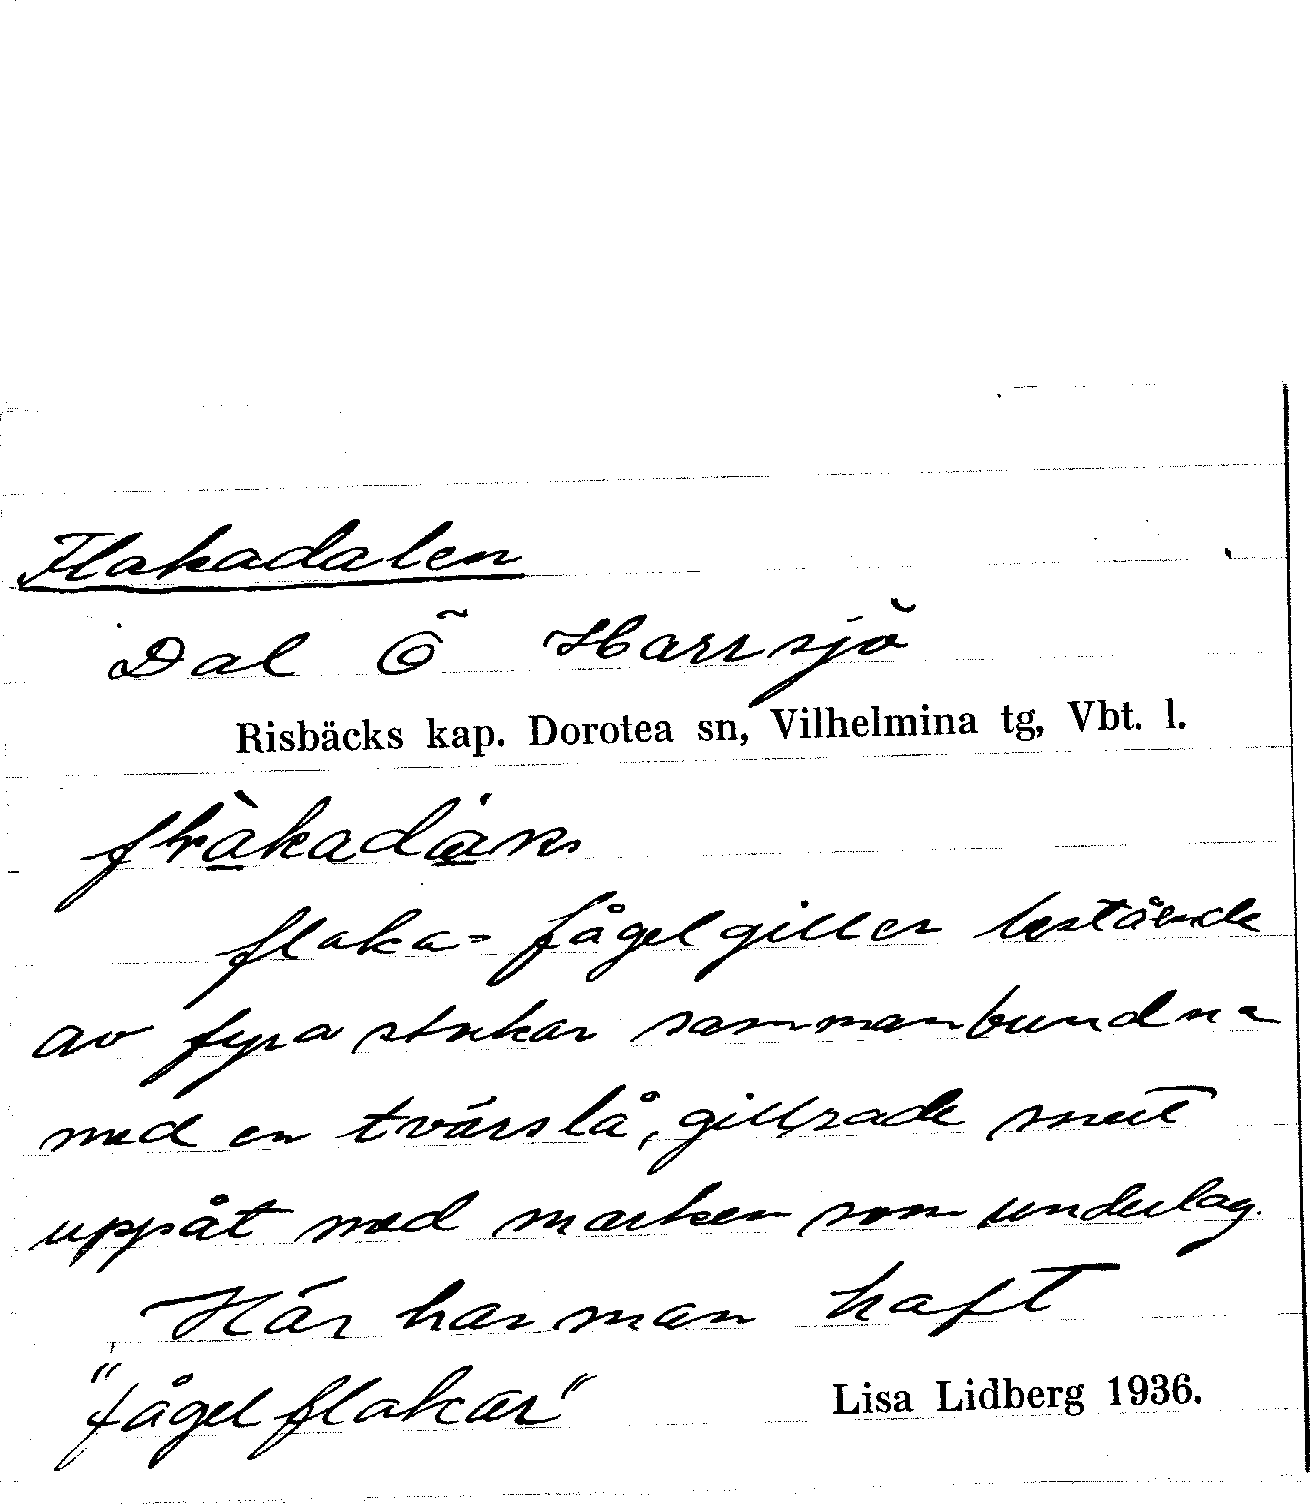 Flakadalen
Dal Ö Harrsjö
Risbäcks kap. Dorotea sn, Vilhelmina tg, Vbt. l.
flaka= fågelgiller bestående
av fyra stockar sammanbundna
med en tvärslå, gillrade snett
uppåt med marken som underlag.
Här har man haft
"fågelflakar"
Lisa Lidberg 1936.